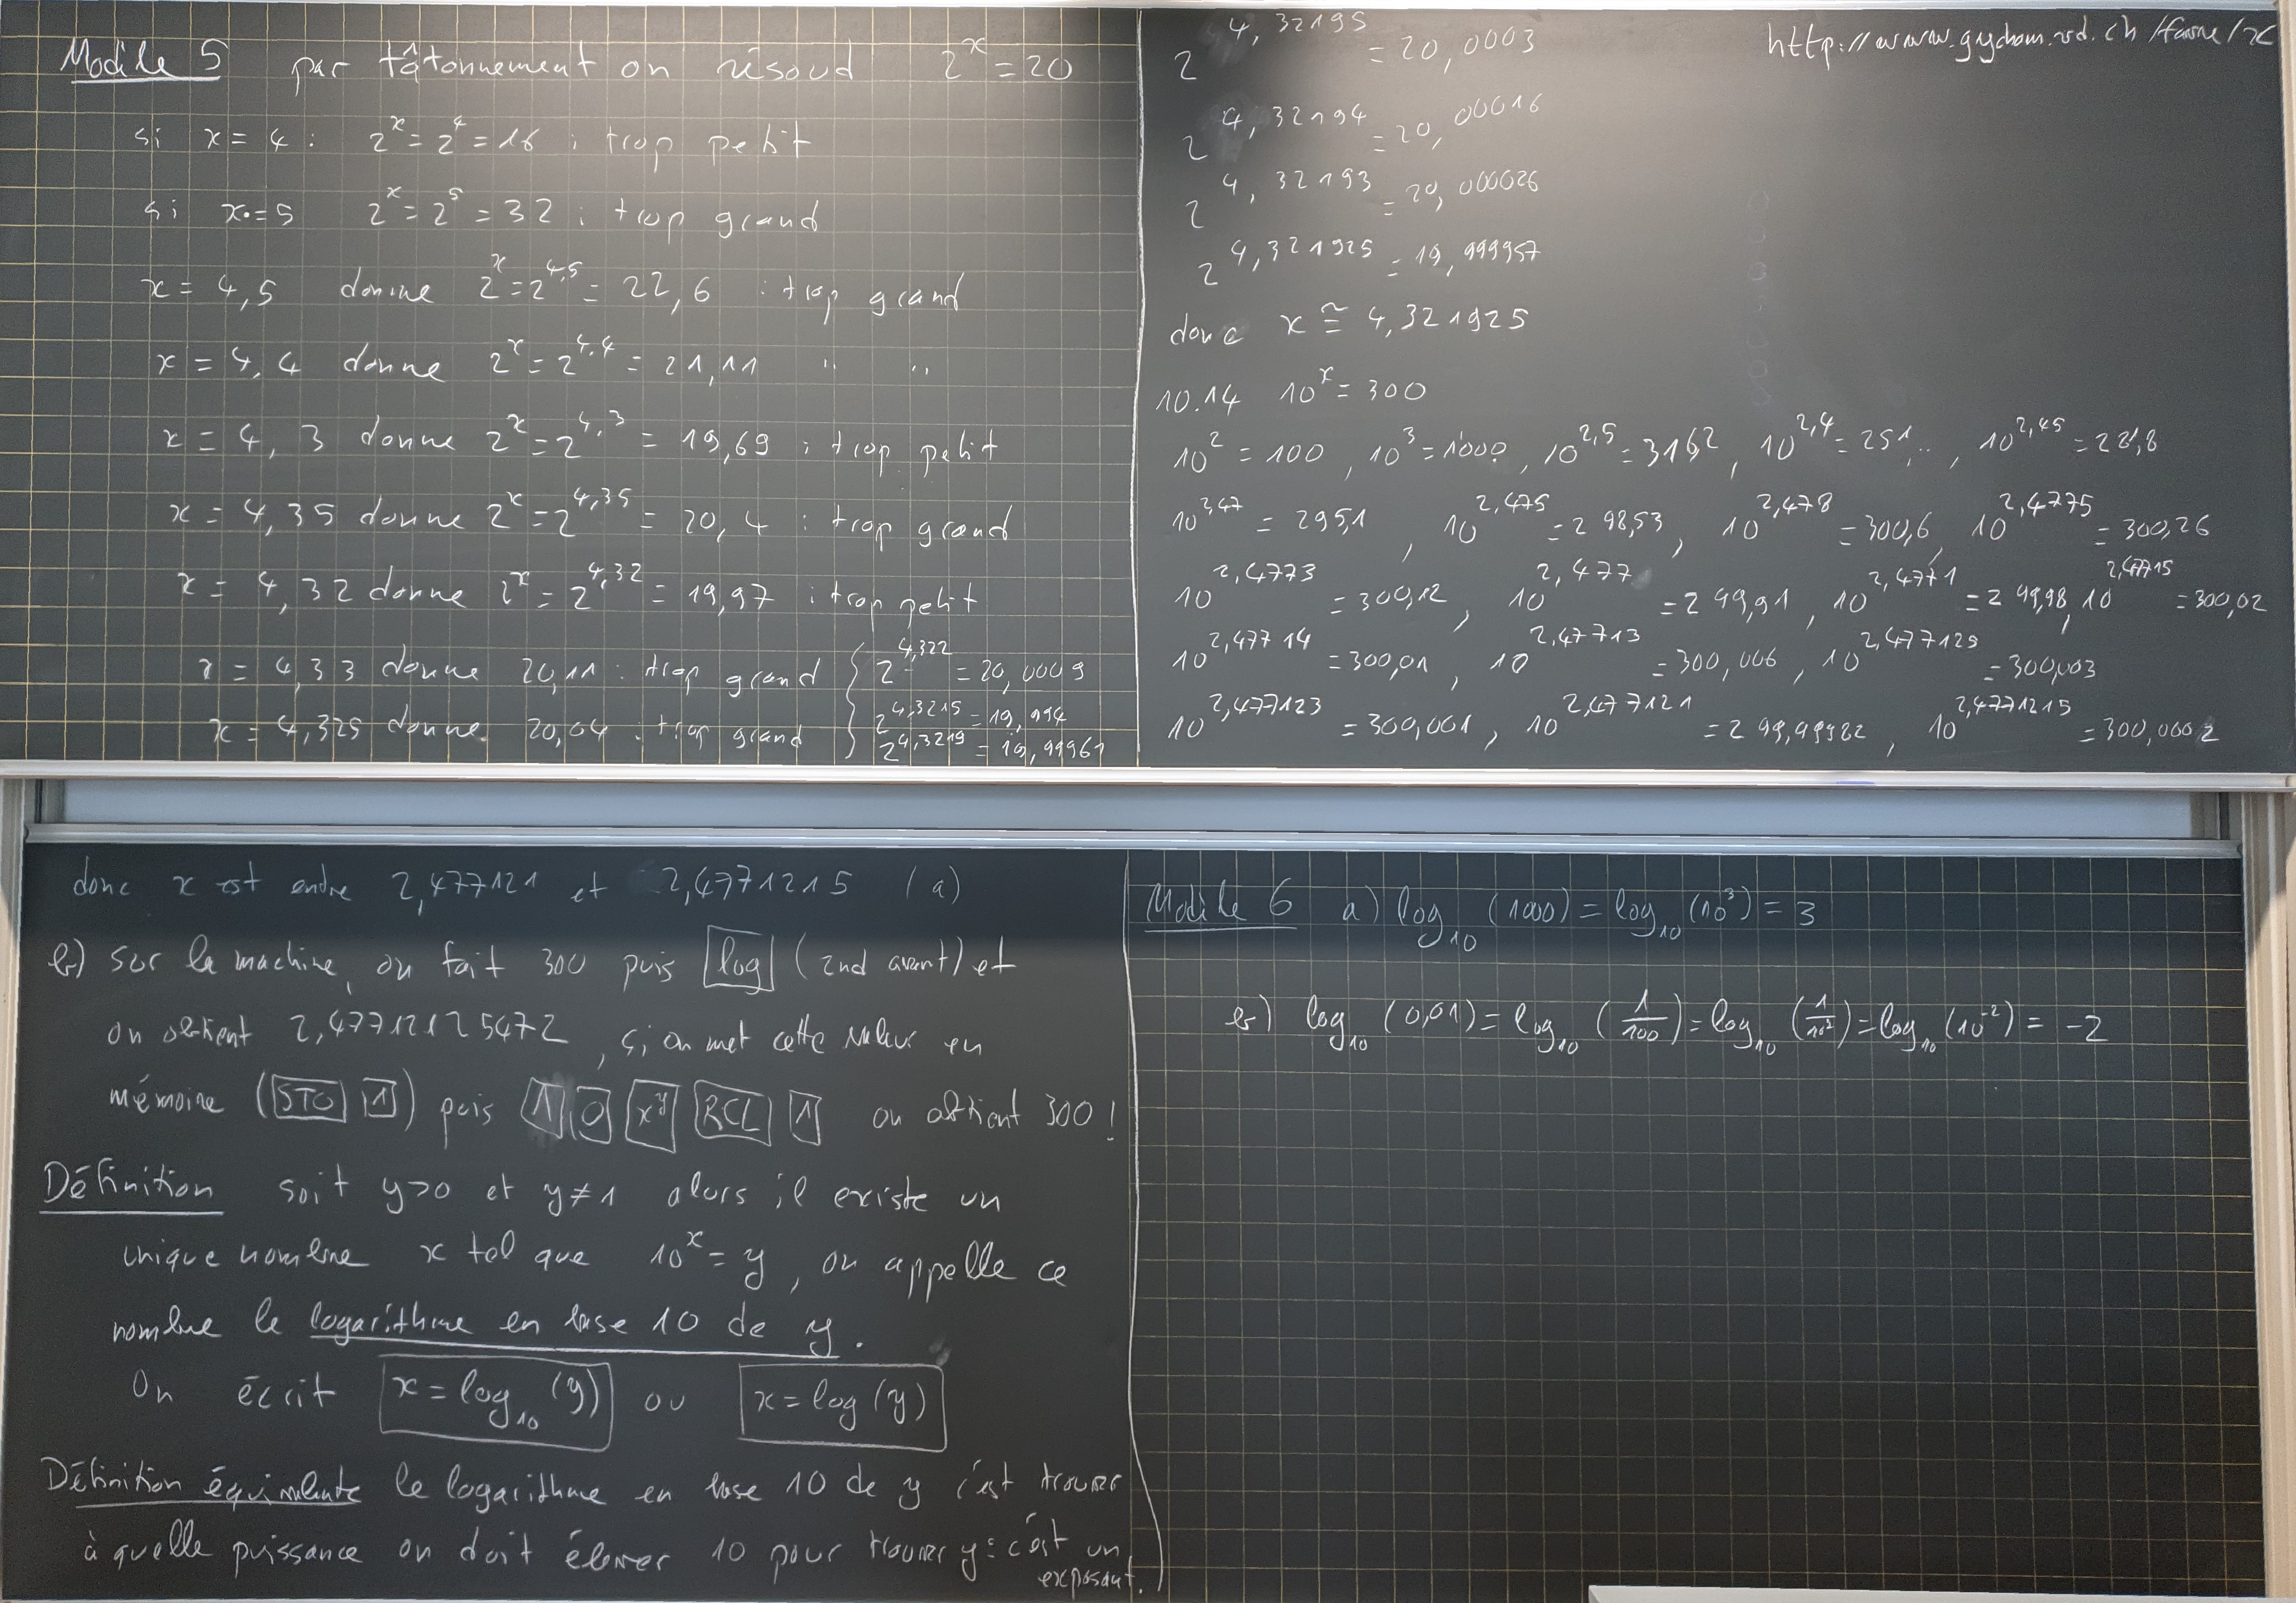 Modèle 5 par tâtonnement on résoud 2^x = 20
si x = 4 : 2^x = 2^4 = 16 : trop petit
si x = 5 2^x = 2^5 = 32 : trop grand
x = 4,5 donne 2^x = 2^4,5 = 22,6 : trop grand
x = 4,4 donne 2^x = 2^4,4 = 21,11 " "
x = 4,3 donne 2^x = 2^4,3 = 19,69 : trop petit
x = 4,35 donne 2^x = 2^4,35 = 20,4 : trop grand
x = 4,32 donne 2^x = 2^4,32 = 19,97 : trop petit
x = 4,33 donne 20,11 : trop grand
x = 4,325 donne 20,04 : trop grand
2^4,322 = 20,0009
2^4,3215 = 19,994
2^4,3219 = 19,99961
http://www.gychom.vd.ch/
2^4,32195 = 20,0003
2^4,32194 = 20,00016
2^4,32193 = 20,000026
2^4,321925 = 19,999957
donc x ≅ 4,321925
10.14 10^x = 300
10^2 = 100 , 10^3 = 1000 , 10^2,5 = 3162 , 10^2,4 = 251,.. , 10^2,45 = 281,8
10^3,47 = 295,1 , 10^2,475 = 298,53 , 10^2,478 = 300,6 , 10^2,4775 = 300,26
10^2,4773 = 300,12 , 10^2,477 = 299,91 , 10^2,4771 = 299,98 , 10^2,47715 = 300,02
10^2,47714 = 300,01 , 10^2,47713 = 300,006 , 10^2,477125 = 300,003
10^2,477123 = 300,001 , 10^2,477121 = 299,99982 , 10^2,4771215 = 300,0002
donc x est entre 2,477121 et 2,4771215 (a)
b) sur la machine, on fait 300 puis log (2nd avant) et
on obtient 2,47712125472 , si on met cette valeur en
mémoire (STO 1) puis 1 0 x^y RCL 1 on obtient 300 !
Définition soit y>0 et y≠1 alors il existe un
unique nombre x tel que 10^x = y , on appelle ce
nombre le logarithme en base 10 de y.
On écrit x = log₁₀(y) ou x = log(y)
Définition équivalente le logarithme en base 10 de y c'est trouver
à quelle puissance on doit élever 10 pour trouver y : c'est un
exposant.
Modèle 6 a) log₁₀(1000) = log₁₀(10³) = 3
b) log₁₀(0,01) = log₁₀(1/100) = log₁₀(1/10²) = log₁₀(10^-2) = -2